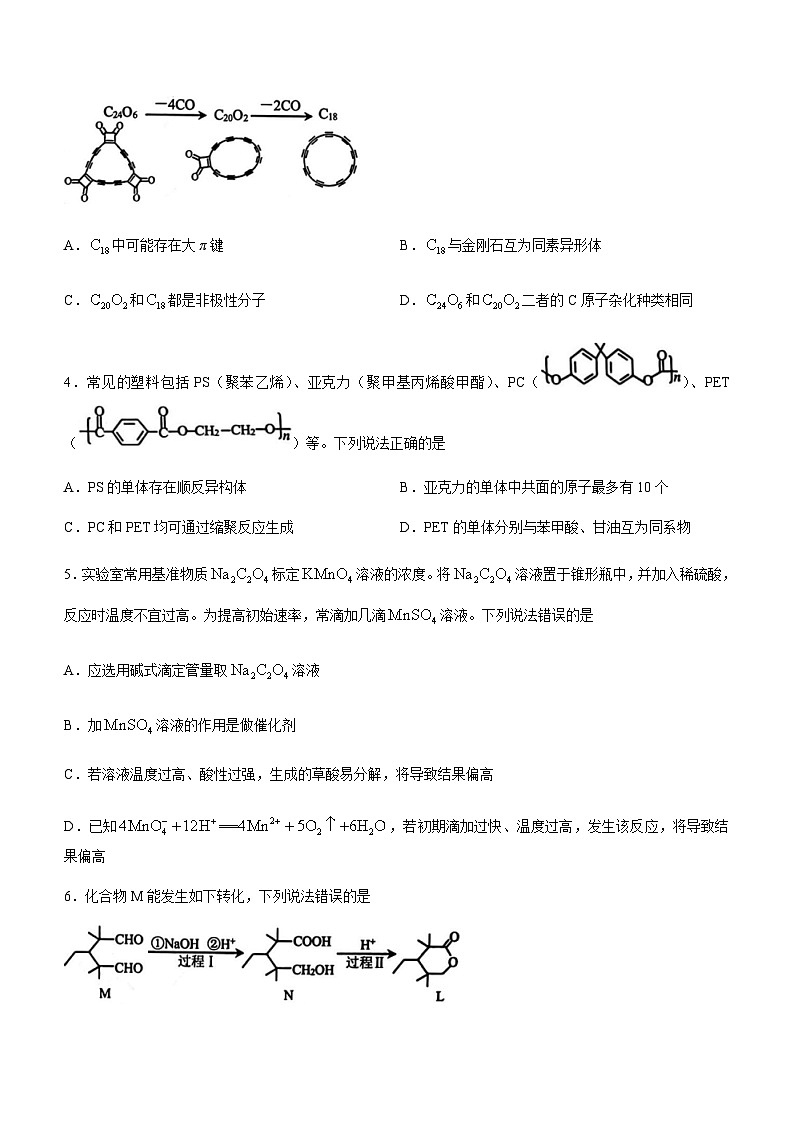 C₂₄O₆ —4CO C₂₀O₂ —2CO C₁₈
A．C₁₈中可能存在大π键 B．C₁₈与金刚石互为同素异形体
C．C₂₀O₂和C₁₈都是非极性分子 D．C₂₄O₆和C₂₀O₂二者的C原子杂化种类相同
4．常见的塑料包括PS（聚苯乙烯）、亚克力（聚甲基丙烯酸甲酯）、PC（ O O O n ）、PET
（ O C O C—O—CH₂—CH₂—O n ）等。下列说法正确的是
A．PS的单体存在顺反异构体 B．亚克力的单体中共面的原子最多有10个
C．PC和PET均可通过缩聚反应生成 D．PET的单体分别与苯甲酸、甘油互为同系物
5．实验室常用基准物质Na₂C₂O₄标定KMnO₄溶液的浓度。将Na₂C₂O₄溶液置于锥形瓶中，并加入稀硫酸，
反应时温度不宜过高。为提高初始速率，常滴加几滴MnSO₄溶液。下列说法错误的是
A．应选用碱式滴定管量取Na₂C₂O₄溶液
B．加MnSO₄溶液的作用是做催化剂
C．若溶液温度过高、酸性过强，生成的草酸易分解，将导致结果偏高
D．已知4MnO₄⁻+12H⁺══4Mn²⁺+5O₂↑+6H₂O，若初期滴加过快、温度过高，发生该反应，将导致结
果偏高
6．化合物M能发生如下转化，下列说法错误的是
CHO CHO M ①NaOH ②H⁺ 过程Ⅰ COOH CH₂OH N H⁺ 过程Ⅱ O O L